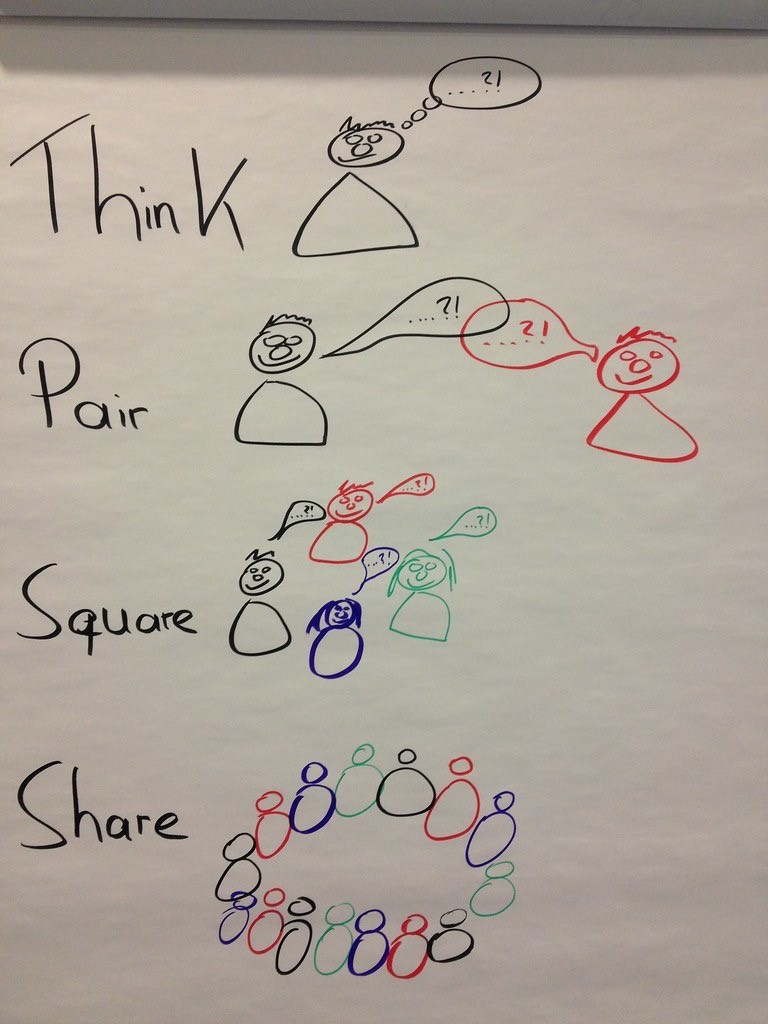 .....?!
Think
.....?!
.....?!
Pair
....?!
....?!
....?!
...?!
Square
Share